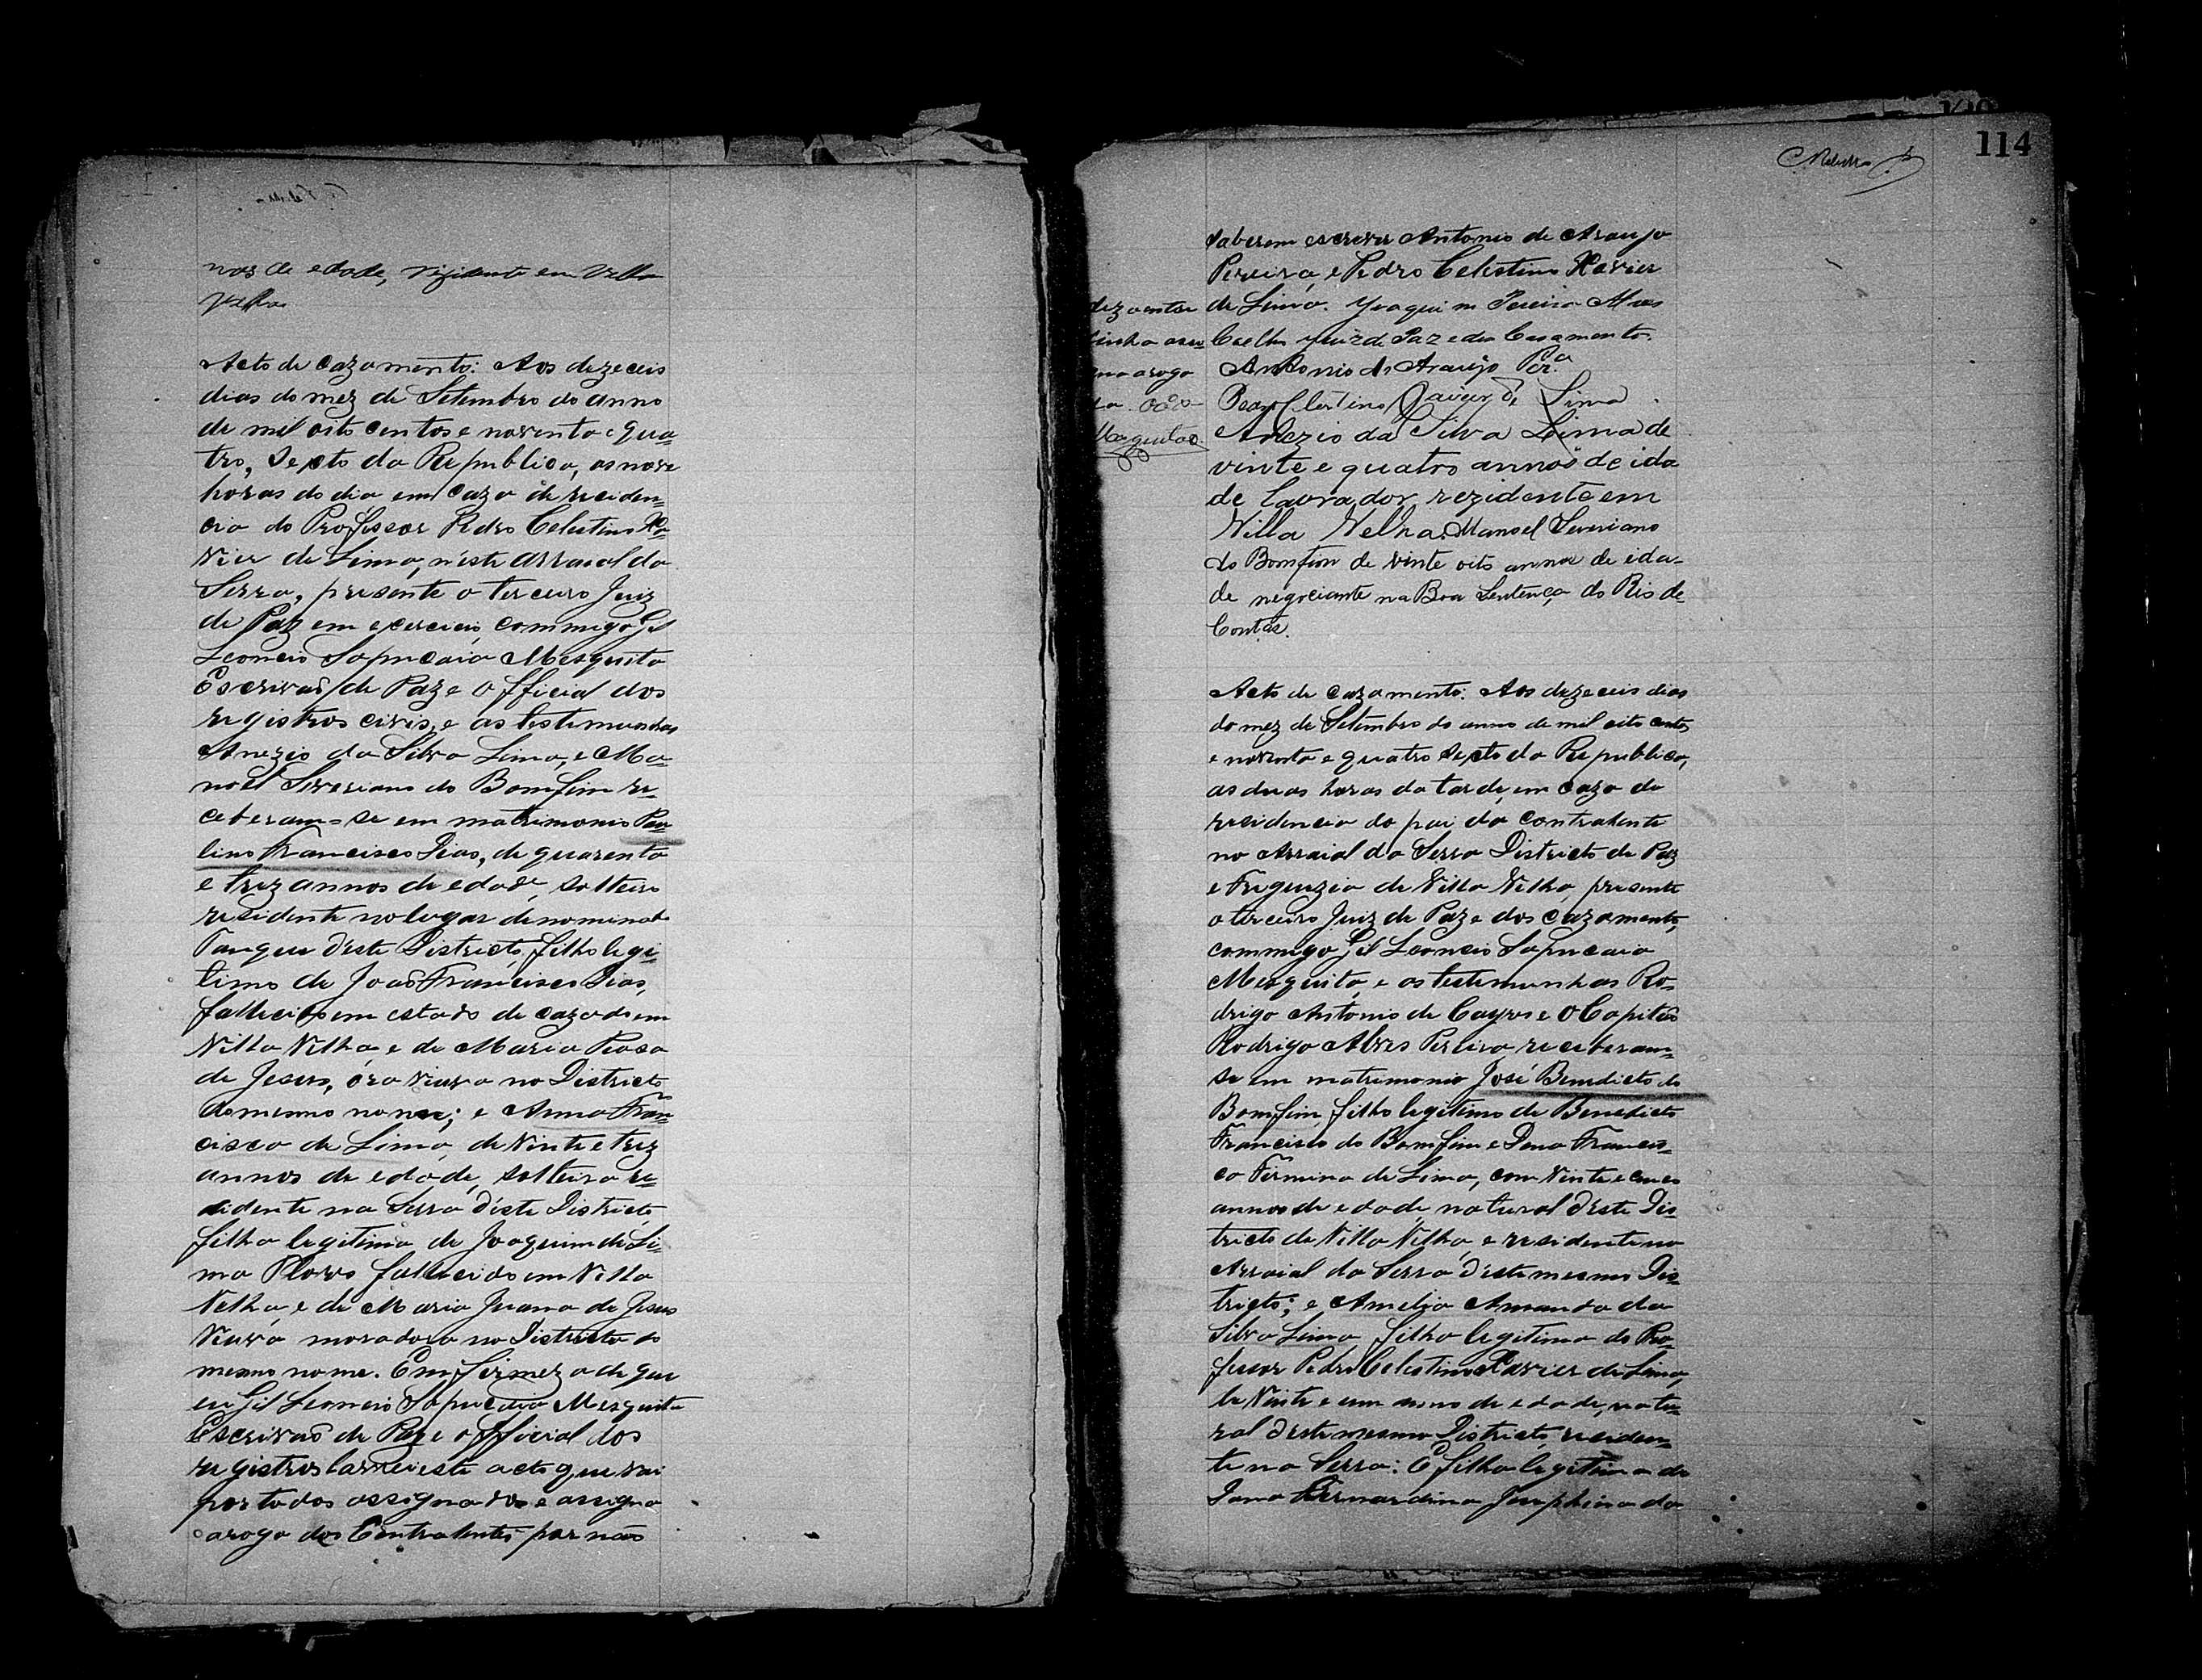 nos de edade, rizidente em Villa
Velha
Acto de cazamento: Aos dezeceis
dias do mez de Setembro do anno
de mil oito centos e noventa e qua
tro, Sexto da Republica, as nove
horas do dia em caza de residen=
cia do Professor Pedro Celestino Xa
vier de Lima, n'este Arraial da
Serra, presente o terceiro Juiz
de Paz em exercicio, commigo Gil
Leoncio Sapucaia Mesquita
Escrivaõ de Paz e Official dos
registros civis, e as testimunhas
Anezio da Silva Lima, e Ma
noel Severiano do Bomfim re=
ceberam=se em matrimonio Pau=
lino Francisco Dias, de quarenta
e trez annos de edade, solteiro
residente no lugar denominado
Tanque d'este Districto, filho legi=
timo de Joaõ Francisco Dias,
fallecido em estado de cazado em
Villa Velha e de Maria Roza
de Jesus, óra viuva no Districto
do mesmo nome; e Anna Fran=
cisca de Lima, de vinte e trez
annos de edade, solteira re=
sidente na Serra d'este Districto
filha legitima de Joaquim de Li=
ma fallecido em Villa
Velha, e de Maria Juana de Jesus
Viuva moradora no Districto do
mesmo nome. Em firmeza de que
eu Gil Leoncio Sapucaia Mesquita
Escrivaõ de Paz e official dos
registros lavrei este acto que vai
por todos assignados e assigna
arogo dos Contratentes por não
114
saberem escrever Antonio de Araujo
Pereira, e Pedro Celestino Xavier
de Lima. Joaquim Pereira
Coelho Juiz de Paz e dos Casamento.
Antonio de Araujo Per.ª
Pedro Celestino Xavier de Lima
Anezio da Silva Lima de
vinte e quatro annos de ida
de lavrador rezidente em
Villa Velha. Manoel Severiano
do Bomfim de vinte oito annos de ida-
de negociante na Boa Sentença do Rio de
Contas.
arogo
Mesquita
Acto de cazamento: Aos dezeceis dias
do mez de Setembro do anno de mil oito centos
e noventa e quatro Sexto da Republica,
as duas horas da tarde, em caza da
residencia do pai da contratente
no Arraial da Serra Districto de Paz
e Freguezia de Villa Velha, presente
o terceiro Juiz de Paz e dos cazamento,
commigo Gil Leoncio Sapucaia
Mesquita, e as testemunhas Ro=
drigo Antonio de Cayres e o Capitão
Rodrigo Alves Pereira, receberam=
se em matrimonio José Benedicto do
Bomfim, filho legitimo de Benedicto
Francisco do Bomfim e Dona Francis=
ca Firmina de Lima, com vinte e cinco
annos de edade, natural d'este Dis=
tricto de Villa Velha, e residente no
Arraial da Serra d'este mesmo Dis=
tricto; e Amelia Amanda da
Silva Lima, filha legitima do Pro=
fessor Pedro Celestino Xavier de Lima,
de vinte e um annos de edade, natu=
ral deste mesmo Districto, residen=
te na Serra: E filha legitima de
Dona Bernardina Josephina da